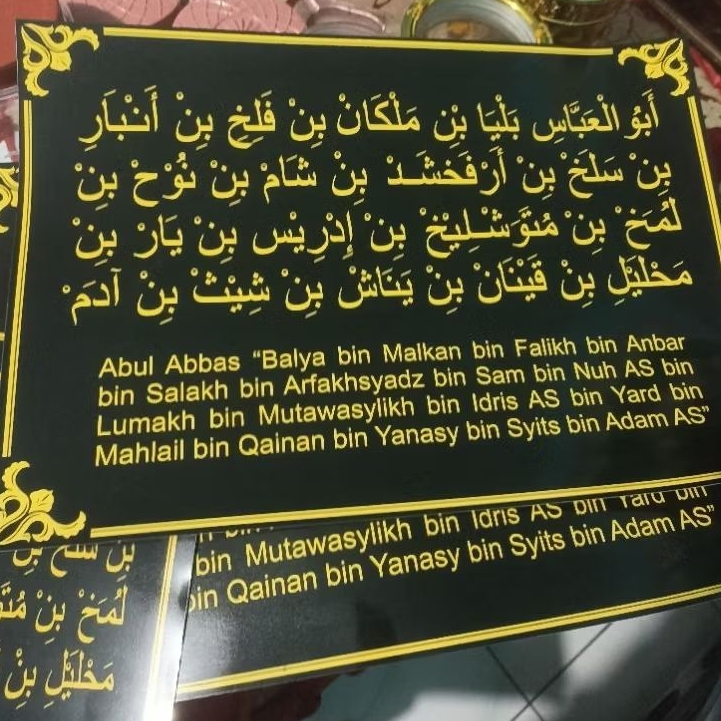 أَبُو الْعَبَّاسِ بَلْيَا بِنِ مَلْكَانْ بِنْ فَلَخِ بِنْ أَنْبَارِ
بِنْ سَلَخْ بِنْ أَرْفَخْشَـدْ بِنْ شَامْ بِنْ نُوْحْ بِنْ
لُمَخْ بِنْ مُتَوَشْـلِيْخْ بِنْ إِدْرِيْس بِنْ يَارْ بِنْ
مَحْلَيْلِ بِنْ قَيْنَانْ بِنْ يَنَاشْ بِنْ شِيْثْ بِنْ آدَمْ
Abul Abbas “Balya bin Malkan bin Falikh bin Anbar
bin Salakh bin Arfakhsyadz bin Sam bin Nuh AS bin
Lumakh bin Mutawasylikh bin Idris AS bin Yard bin
Mahlail bin Qainan bin Yanasy bin Syits bin Adam AS”
bin Idris AS bin Yard bin
bin Mutawasylikh
bin Qainan bin Yanasy bin Syits bin Adam AS”
بِنْ سَلَخْ بِنْ
لُمَخْ بِنْ
مَحْلَيْلِ بِنْ